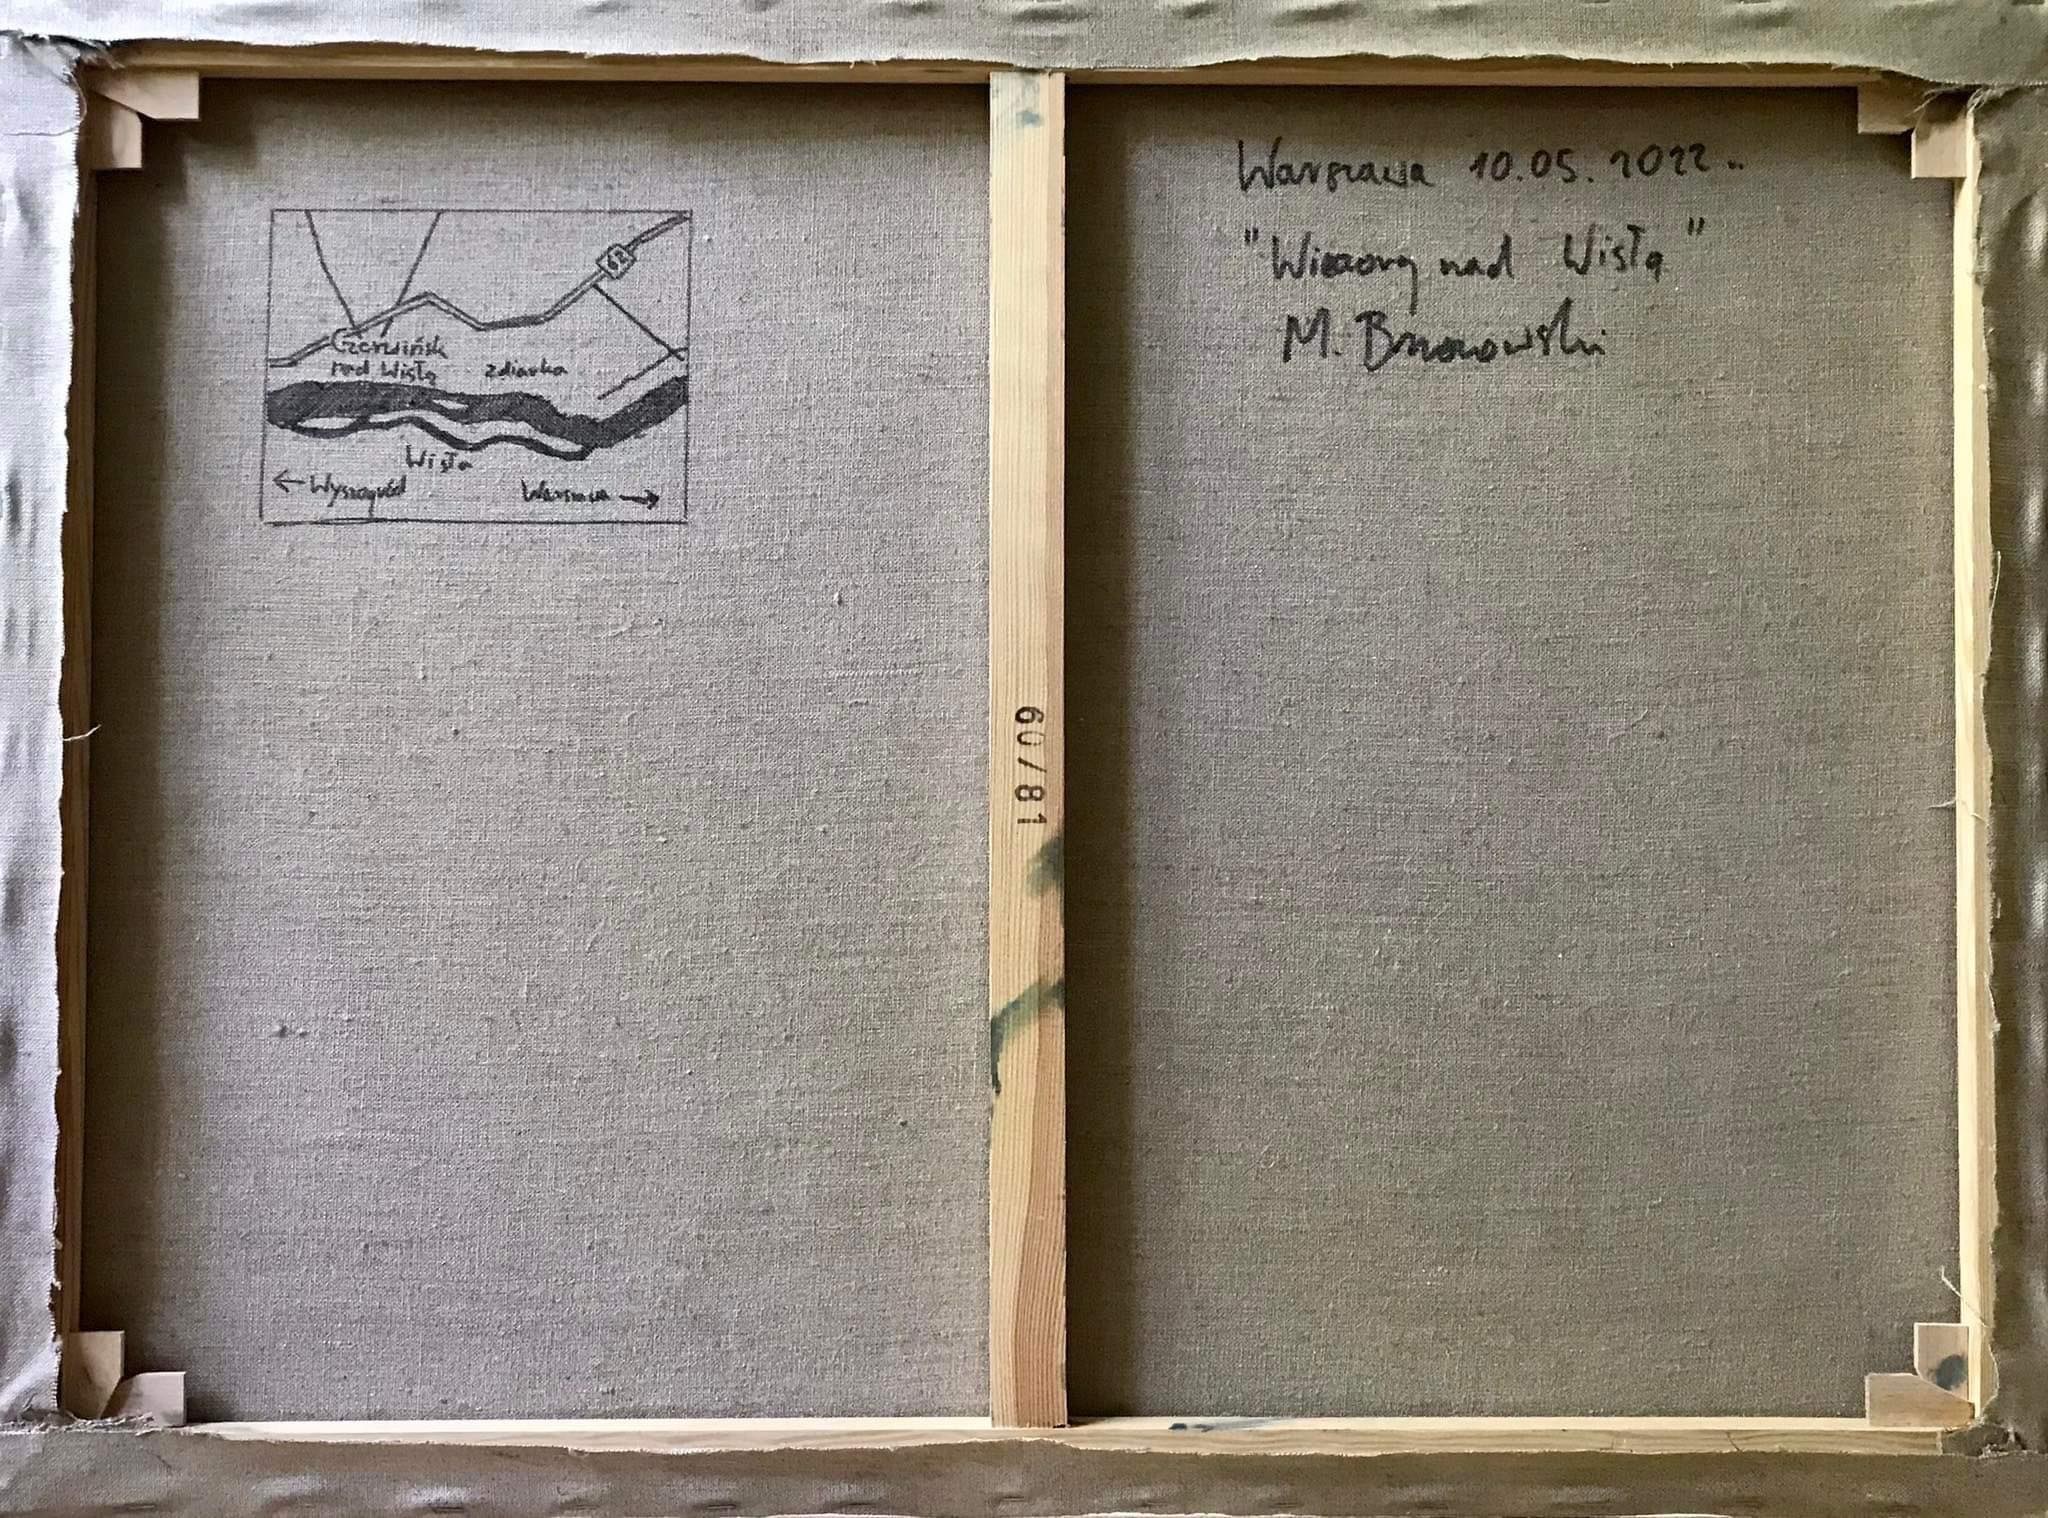 62
Czerwińsk
nad Wisłą
zdiarka
Wisła
← Wyszogród
Warszawa →
60/81
Warszawa 10.05.2022..
"Wieczory nad Wisłą"
M.